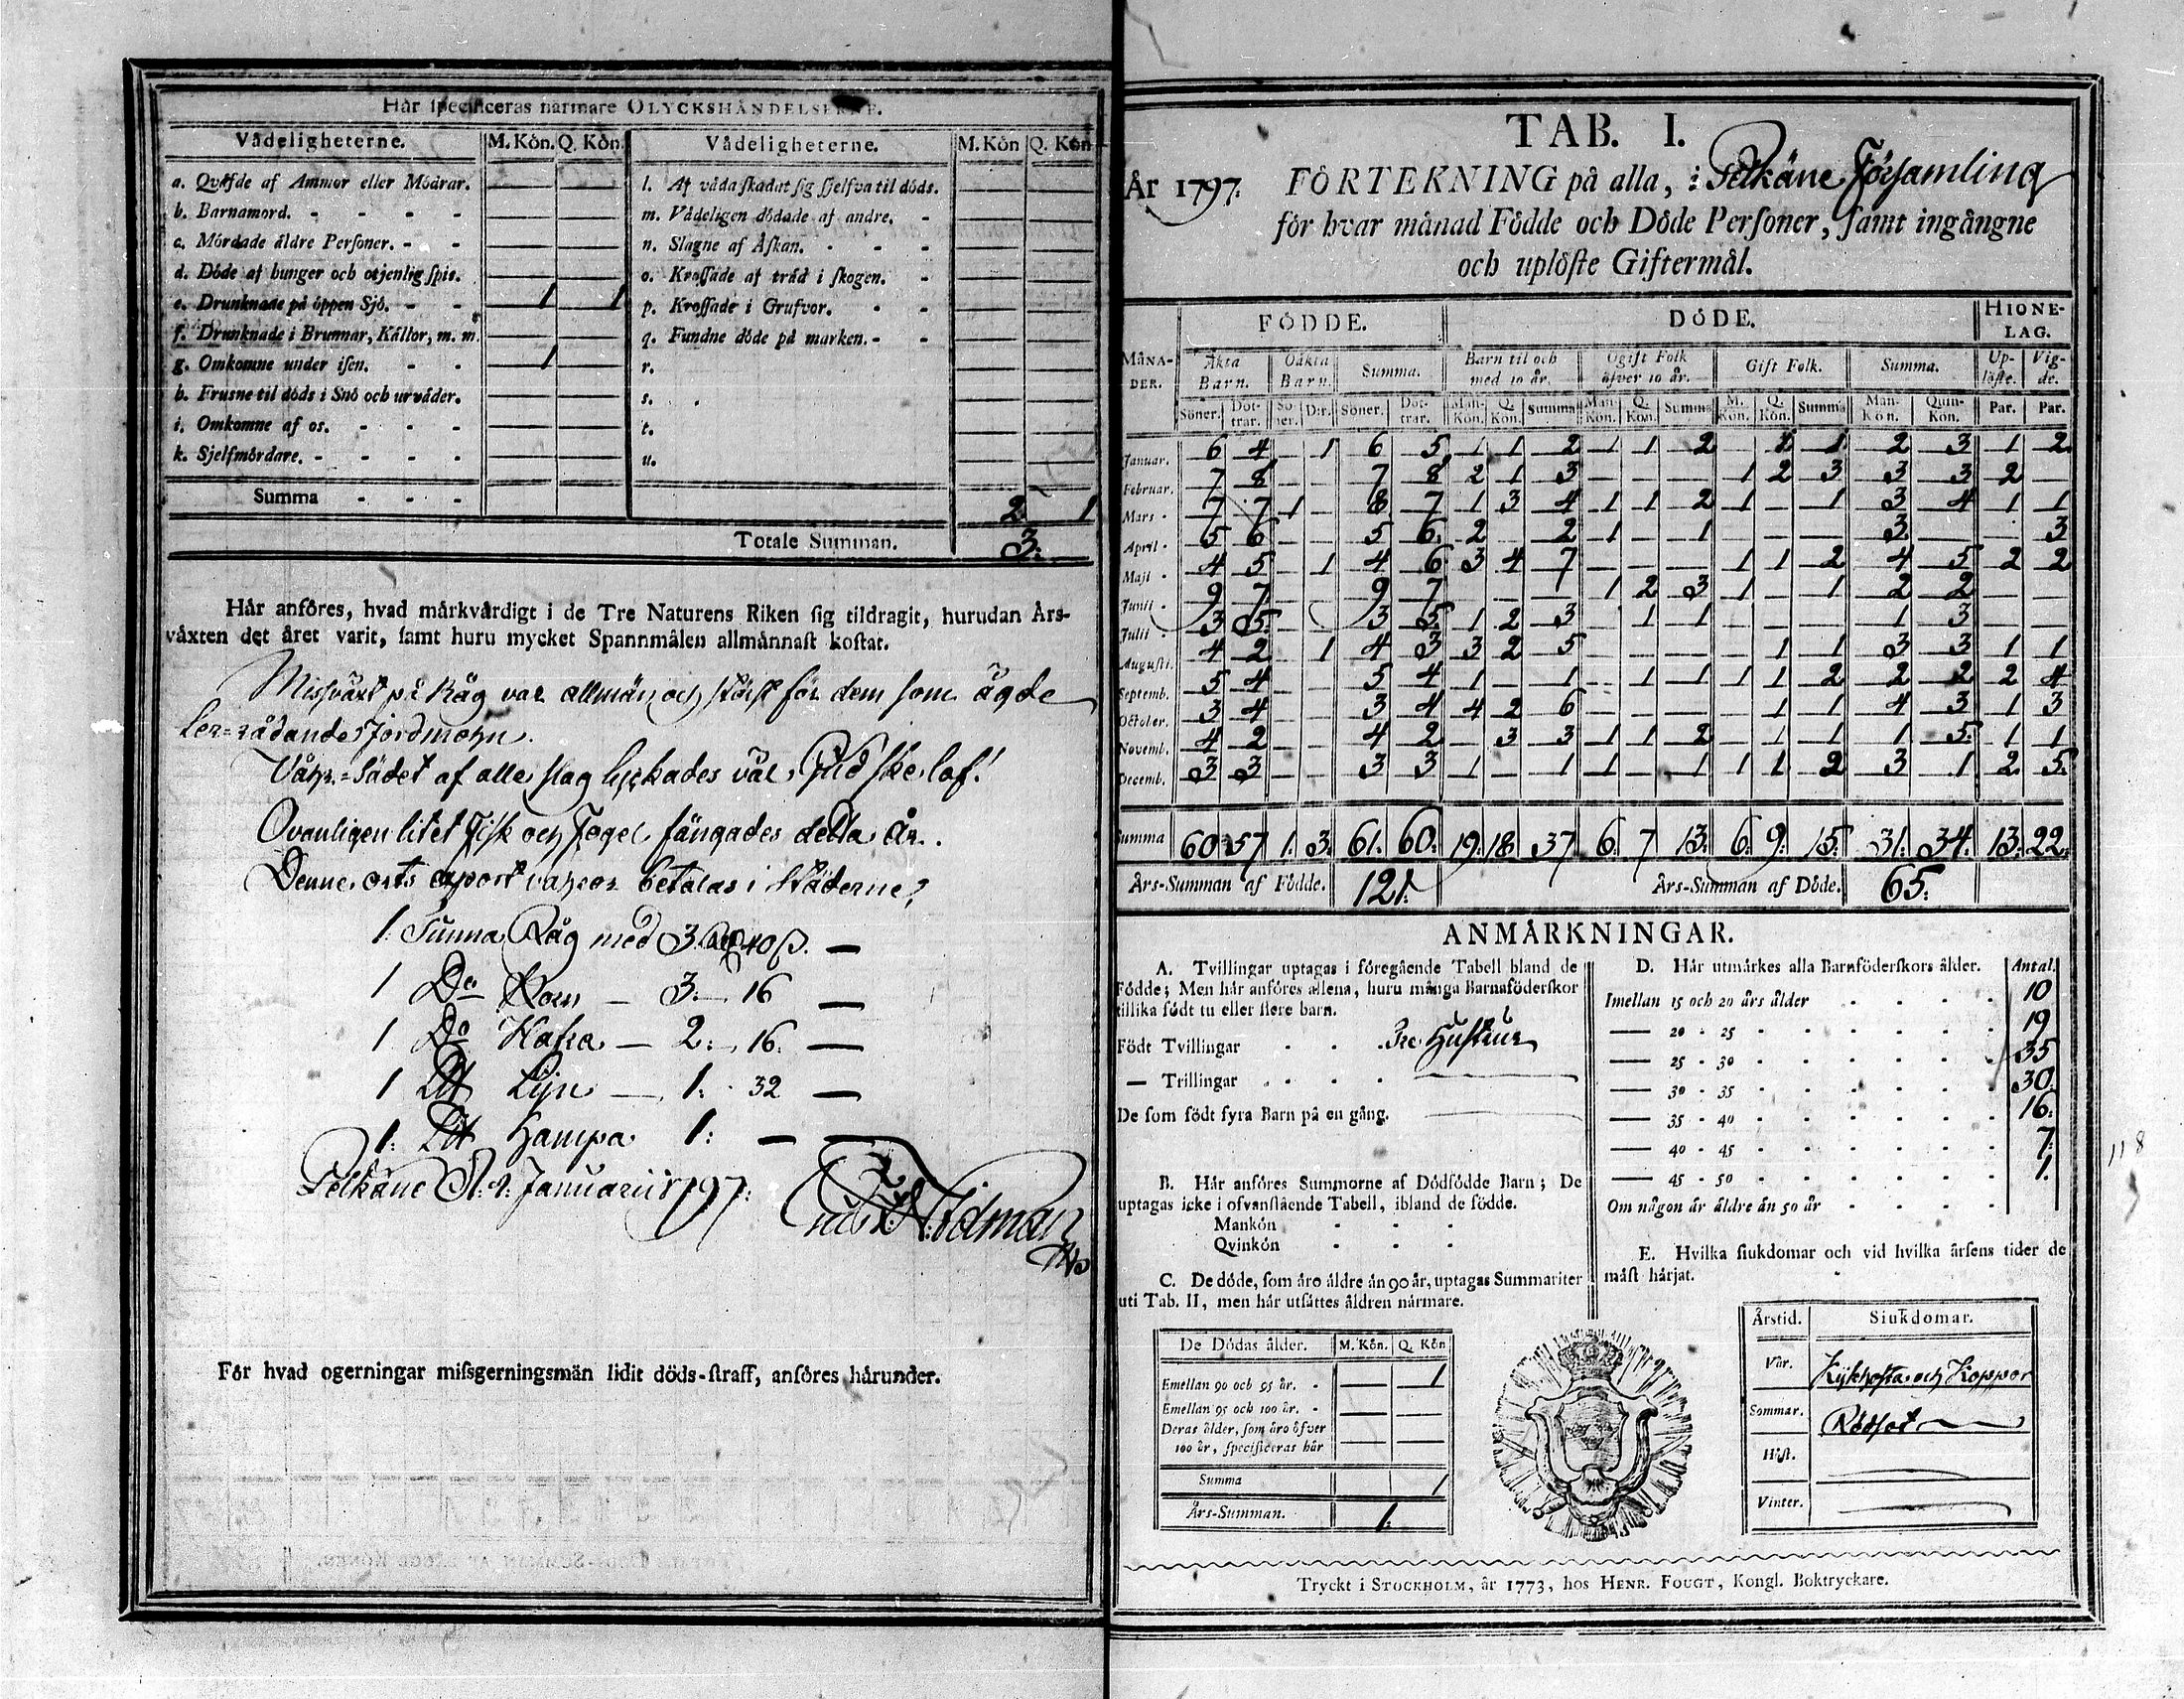 Hår specificeras närmare OLYCKSHÄNDELSERNE.
Vådeligheterne. M. Kön. Q. Kön. Vådeligheterne. M. Kön Q. Kön
a. Qväfde af Ammor eller Mödrar. — — l. Af våda skadat sig sjelfva til döds. — —
b. Barnamord. - - - — — m. Vådeligen dödade af andre. - — —
c. Mördade äldre Personer. - - — — n. Slagne af Åskan. - - - — —
d. Döde af hunger och otjenlig spis. — — o. Krossade af träd i skogen. - — —
e. Drunknade på öppen Sjö. - - 1 1 p. Krossade i Grufvor. - - — —
f. Drunknade i Brunnar, Källor, m. m. — — q. Fundne döde på marken. - - — —
g. Omkomne under isen. - - 1 — r. — —
h. Frusne til döds i Snö och urväder. — — s. — —
i. Omkomne af os. - - - — — t. — —
k. Sjelfmördare. - - - - — — u. — —
Summa - - - 2 1
Totale Summan. 3:
Hår anföres, hvad mårkvårdigt i de Tre Naturens Riken sig tildragit, hurudan Års-
våxten det året varit, samt huru mycket Spannmålen allmånnast kostat.
Missväxt på Råg var allmän och störst för dem som ägde
Ler-rådande jordmohn.
Våhr-Sädet af alle slag lyckades väl, Gud ske lof!
Ovanligen litet Fisk och Fogel fångades detta år.
Denne orts export vahror betalas i Städerne:
1: Tunna Råg med 3 Rd 40 ß. —
1 Do Korn — 3: — 16 —
1 Do Hafra — 2: — 16. —
1 Lit Lijn — 1: - 32 —
1: Lit Hampa 1: — —
Pelkäne d. 1. Januarii 1797:
För hvad ogerningar missgerningsmän lidit döds-straff, anföres hårunder.
TAB. I.
År 1797. FÖRTEKNING på alla, i Pelkäne Församling
för hvar månad Födde och Döde Personer, samt ingångne
och uplöste Giftermål.
MÅNADER. FÖDDE. DÖDE. HIONELAG.
Äkta Barn. Oäkta Barn. Summa. Barn til och med 10 år. Ogift Folk öfver 10 år. Gift Folk. Summa. Uplöste. Vigde.
Söner. Döttrar. Söner. D:r. Söner. Döttrar. Mankön. Q. Kön. Summa Mankön. Q. Kön. Summa M. Kön. Q. Kön. Summa Mankön. Quinkön. Par. Par.
Januar. 6 4 — 1 6 5 1 1 2 1 1 2 — 1 1 2 3 1 2
Februar. 7 8 — — 7 8 2 1 3 — — — 1 2 3 3 3 2 —
Mars - 7 7 1 — 8 7 1 3 4 1 1 2 1 — 1 3 4 1 1
April - 5 6 — — 5 6 2 — 2 1 — 1 — — — 3 — — 3
Maji - 4 5 — 1 4 6 3 4 7 — — — 1 1 2 4 5 2 2
Junii - 9 7 — — 9 7 — — — 1 2 3 1 — 1 2 2 — —
Julii - 3 5 — — 3 5 1 2 3 — 1 1 — — — 1 3 — —
Augusti. 4 2 — 1 4 3 3 2 5 — — — — 1 1 3 3 1 1
Septemb. 5 4 — — 5 4 1 — 1 — 1 1 1 1 2 2 2 2 4
October. 3 4 — — 3 4 4 2 6 — — — — 1 1 4 3 1 3
Novemb. 4 2 — — 4 2 — 3 3 1 1 2 — 1 1 1 5 1 1
Decemb. 3 3 — — 3 3 1 — 1 1 — 1 1 1 2 3 1 2 5
Summa 60 57 1: 3. 61. 60. 19. 18 37 6: 7 13. 6: 9: 15: 31: 34: 13: 22:
Års-Summan af Födde. 121: Års-Summan af Döde. 65:
ANMÄRKNINGAR.
A. Tvillingar uptagas i föregående Tabell bland de
Födde; Men hår anföres allena, huru många Barnaföderskor
tillika födt tu eller flere barn.
Födt Tvillingar - - - Tre Hustrur
— Trillingar - - - - —
De som födt fyra Barn på en gång. —
B. Hår anföres Summorne af Dödfödde Barn; De
uptagas icke i ofvanstående Tabell, ibland de födde.
Mankön - - -
Qvinkön - - -
C. De döde, som äro äldre än 90 år, uptagas Summariter
uti Tab. II, men här utsättes åldren närmare.
De Dödas ålder. M. Kön. Q. Kön
Emellan 90 och 95 år. - — 1
Emellan 95 och 100 år. - — —
Deras ålder, som äro öfver
100 år, specificeras här — —
Summa 1
Års-Summan. 1:
D. Hår utmärkes alla Barnföderskors ålder. Antal.
Imellan 15 och 20 års ålder - - - 10
— 20 - 25 - - - 19
— 25 - 30 - - - 35
— 30 - 35 - - - 30.
— 35 - 40 - - - 16:
— 40 - 45 - - - 7:
— 45 - 50 - - - 1.
Om någon är äldre än 50 år - - - -
118
E. Hvilka siukdomar och vid hvilka årsens tider de
måst hårjat.
Årstid. Siukdomar.
Vår. Kijkhosta och Koppor
Sommar. Rödsot —
Höst. —
Vinter. —
Tryckt i STOCKHOLM, år 1773, hos HENR. FOUGT, Kongl. Boktryckare.